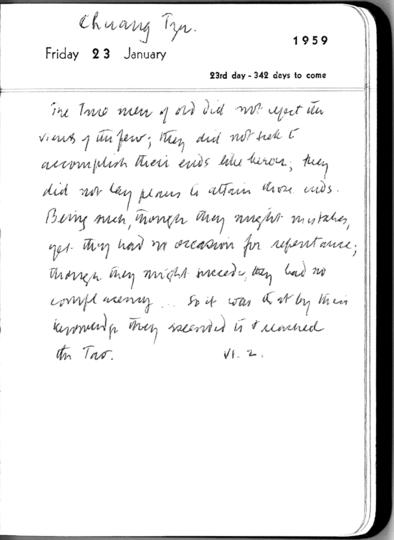 Chuang Tzu.
1959
Friday 23 January
23rd day - 342 days to come
The True men of old did not reject the
views of the few; they did not seek to
accomplish their ends like heroes; they
did not lay plans to attain those ends.
Being such, though they might mistakes,
yet they had no occasion for repentance;
though they might succeed, they had no
complacency ... So it was that by their
knowledge they ascended to & reached
the Tao. VI. 2.